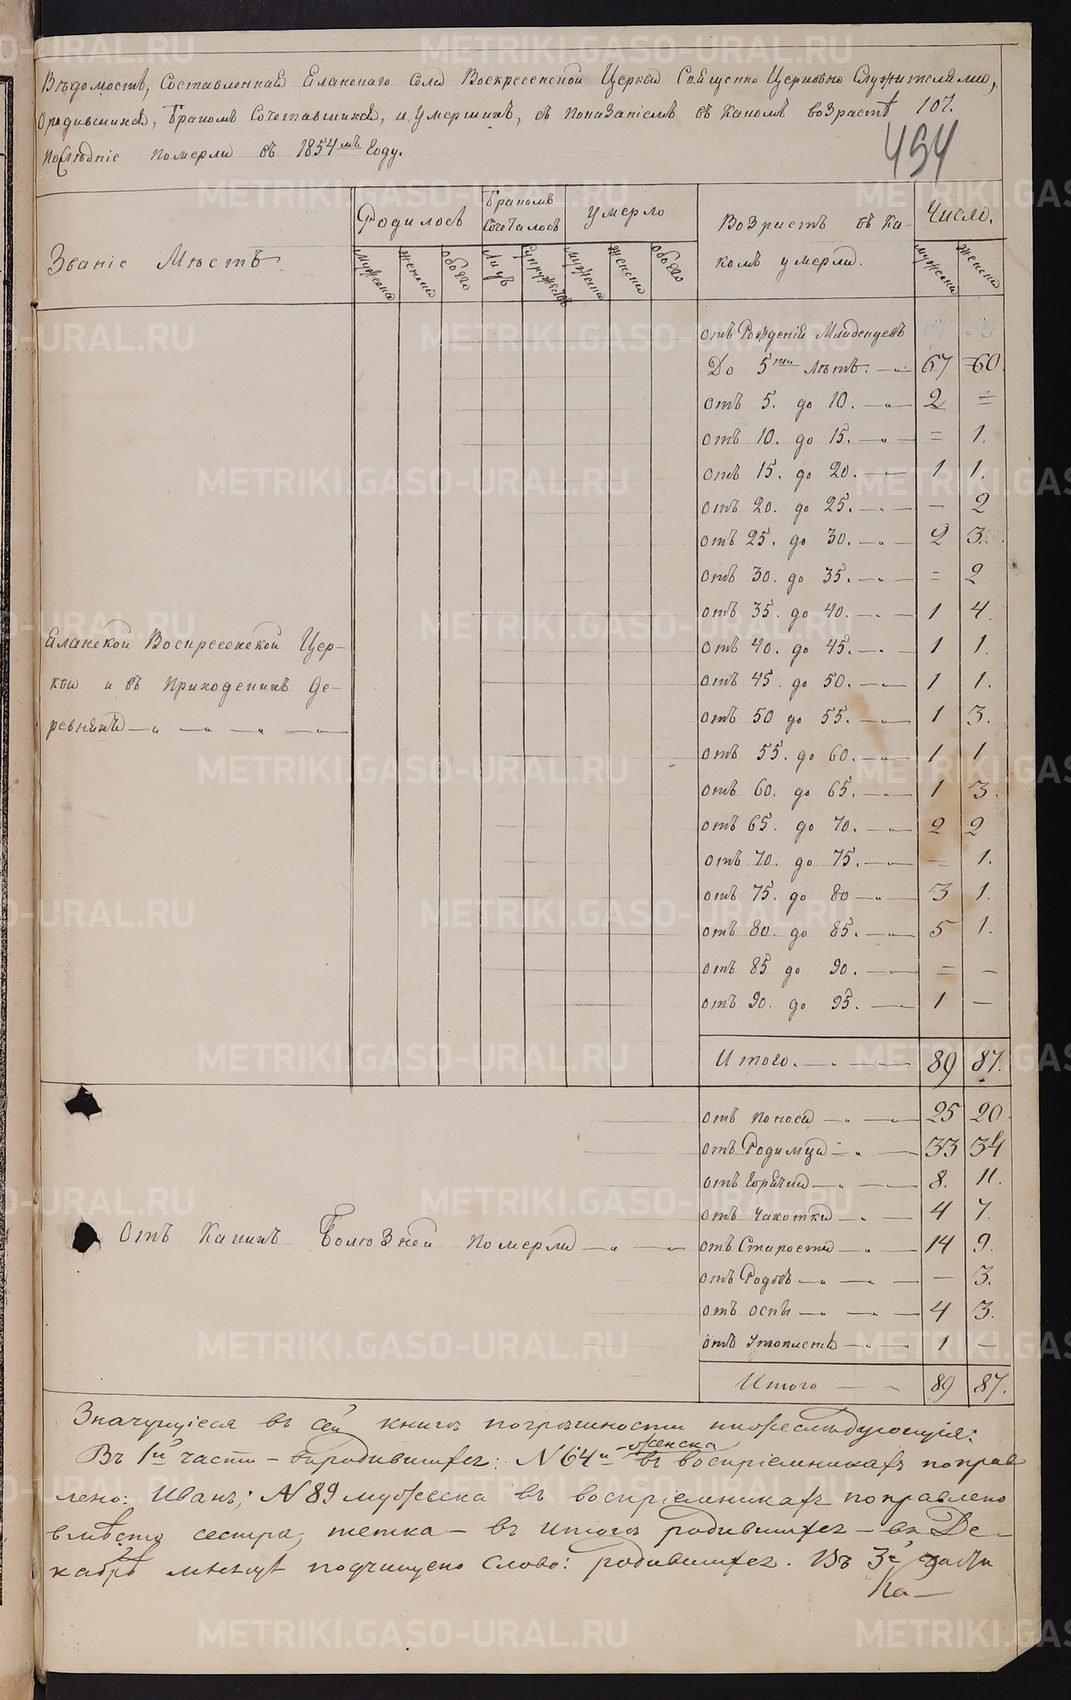 Вѣдомость, Составленная Еланскаго Села Воскресенской Церкви Священно Церковно Служителями,
О родившихся, Бракомъ Сочетавшихся, и Умершихъ, съ показаніемъ въ какомъ возрастѣ
послѣдніе померли въ 1854мъ Году.
494
Званіе Мѣстъ
Родилось
Бракомъ Сочеталось
умерло
Возрастъ въ ка-
комъ умерли.
Число.
мужеска
женска
обоего
Лицъ
Супружествъ
мужеска
женска
обоего
мужеска
женска
отъ Рожденія Младенцевъ
До 5ти лѣтъ. 67 60.
отъ 5. до 10. 2 =
отъ 10. до 15. = 1.
отъ 15. до 20. 1 1.
отъ 20. до 25. - 2
отъ 25. до 30. 2 3.
отъ 30. до 35. = 2
отъ 35. до 40. 1 4.
отъ 40. до 45. 1 1.
отъ 45 до 50. 1 1.
отъ 50 до 55. 1 3.
отъ 55. до 60. 1 1
отъ 60. до 65. 1 3.
отъ 65. до 70. 2 2
отъ 70. до 75. - 1.
отъ 75. до 80 3 1.
отъ 80. до 85. 5 1.
отъ 85 до 90. = -
отъ 90. до 95. 1 -
Итого. 89 87.
Еланской Воскресенской Цер-
кви и въ Приходскихъ де-
ревняхъ
Отъ Какихъ Болюзней померли
отъ поноса 25 20.
отъ Родимца 33 34
отъ Горячки 8. 11.
отъ Чахотки 4 7.
отъ Старости 14 9.
отъ Родовъ - 3.
отъ оспы 4 3.
отъ 1 -
Итого 89 87.
Значущіеся въ сей книгѣ погрѣшности нижеслѣдующія:
Въ 1й части - о родившихся: № 64й женска въ воспріемникахъ поправ
лено: Иванъ; № 89 мужеска въ воспріемникахъ поправлено
вмѣсто сестра, тетка - въ итогѣ родившихся - въ Де-
кабрѣ мѣсяцѣ подчищено слово: родившихся. Въ 3й части
Ка-
METRIKI.GASO-URAL.RU